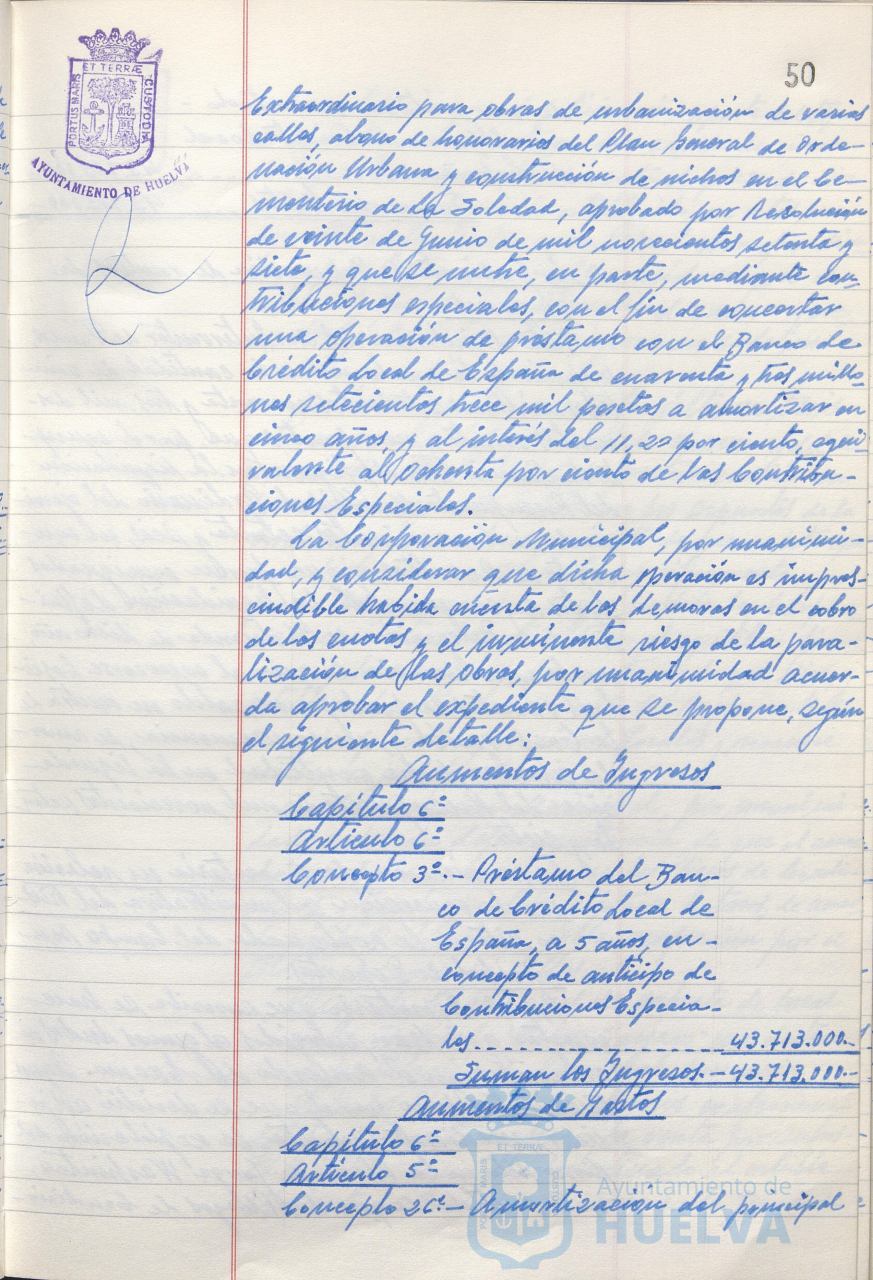 50
ET TERRÆ
PORTUS MARIS
CUSTODIA
AYUNTAMIENTO DE HUELVA
Extraordinario para obras de urbanización de varias
calles, abono de honorarios del Plan General de Orde-
nación Urbana y construcción de nichos en el Ce-
menterio de La Soledad, aprobado por Resolución
de veinte de Junio de mil novecientos setenta y
siete, y que se nutre, en parte, mediante con-
tribuciones especiales, con el fin de concertar
una operación de préstamo con el Banco de
Crédito Local de España de cuarenta y tres millo-
nes setecientos trece mil pesetas a amortizar en
cinco años, y al interés del 11,20 por ciento, equi-
valente al ochenta por ciento de las Contribu-
ciones Especiales.
La Corporación Municipal, por unanimi-
dad, y considerar que dicha operación es impres-
cindible habida cuenta de las demoras en el cobro
de las cuotas y el inminente riesgo de la para-
lización de las obras, por unanimidad acuer-
da aprobar el expediente que se propone, según
el siguiente detalle:
Aumentos de Ingresos
Capítulo 6º
Artículo 6º
Concepto 3º.- Préstamo del Ban-
co de Crédito Local de
España, a 5 años, en
concepto de anticipo de
Contribuciones Especia-
les.................. 43.713.000.-
Suman los Ingresos.- 43.713.000.-
Aumentos de Gastos
Capítulo 6º
Artículo 5º
Concepto 26º.- Amortización del principal
ET TERRÆ
PORTUS MARIS
CUSTODIA
Ayuntamiento de
HUELVA